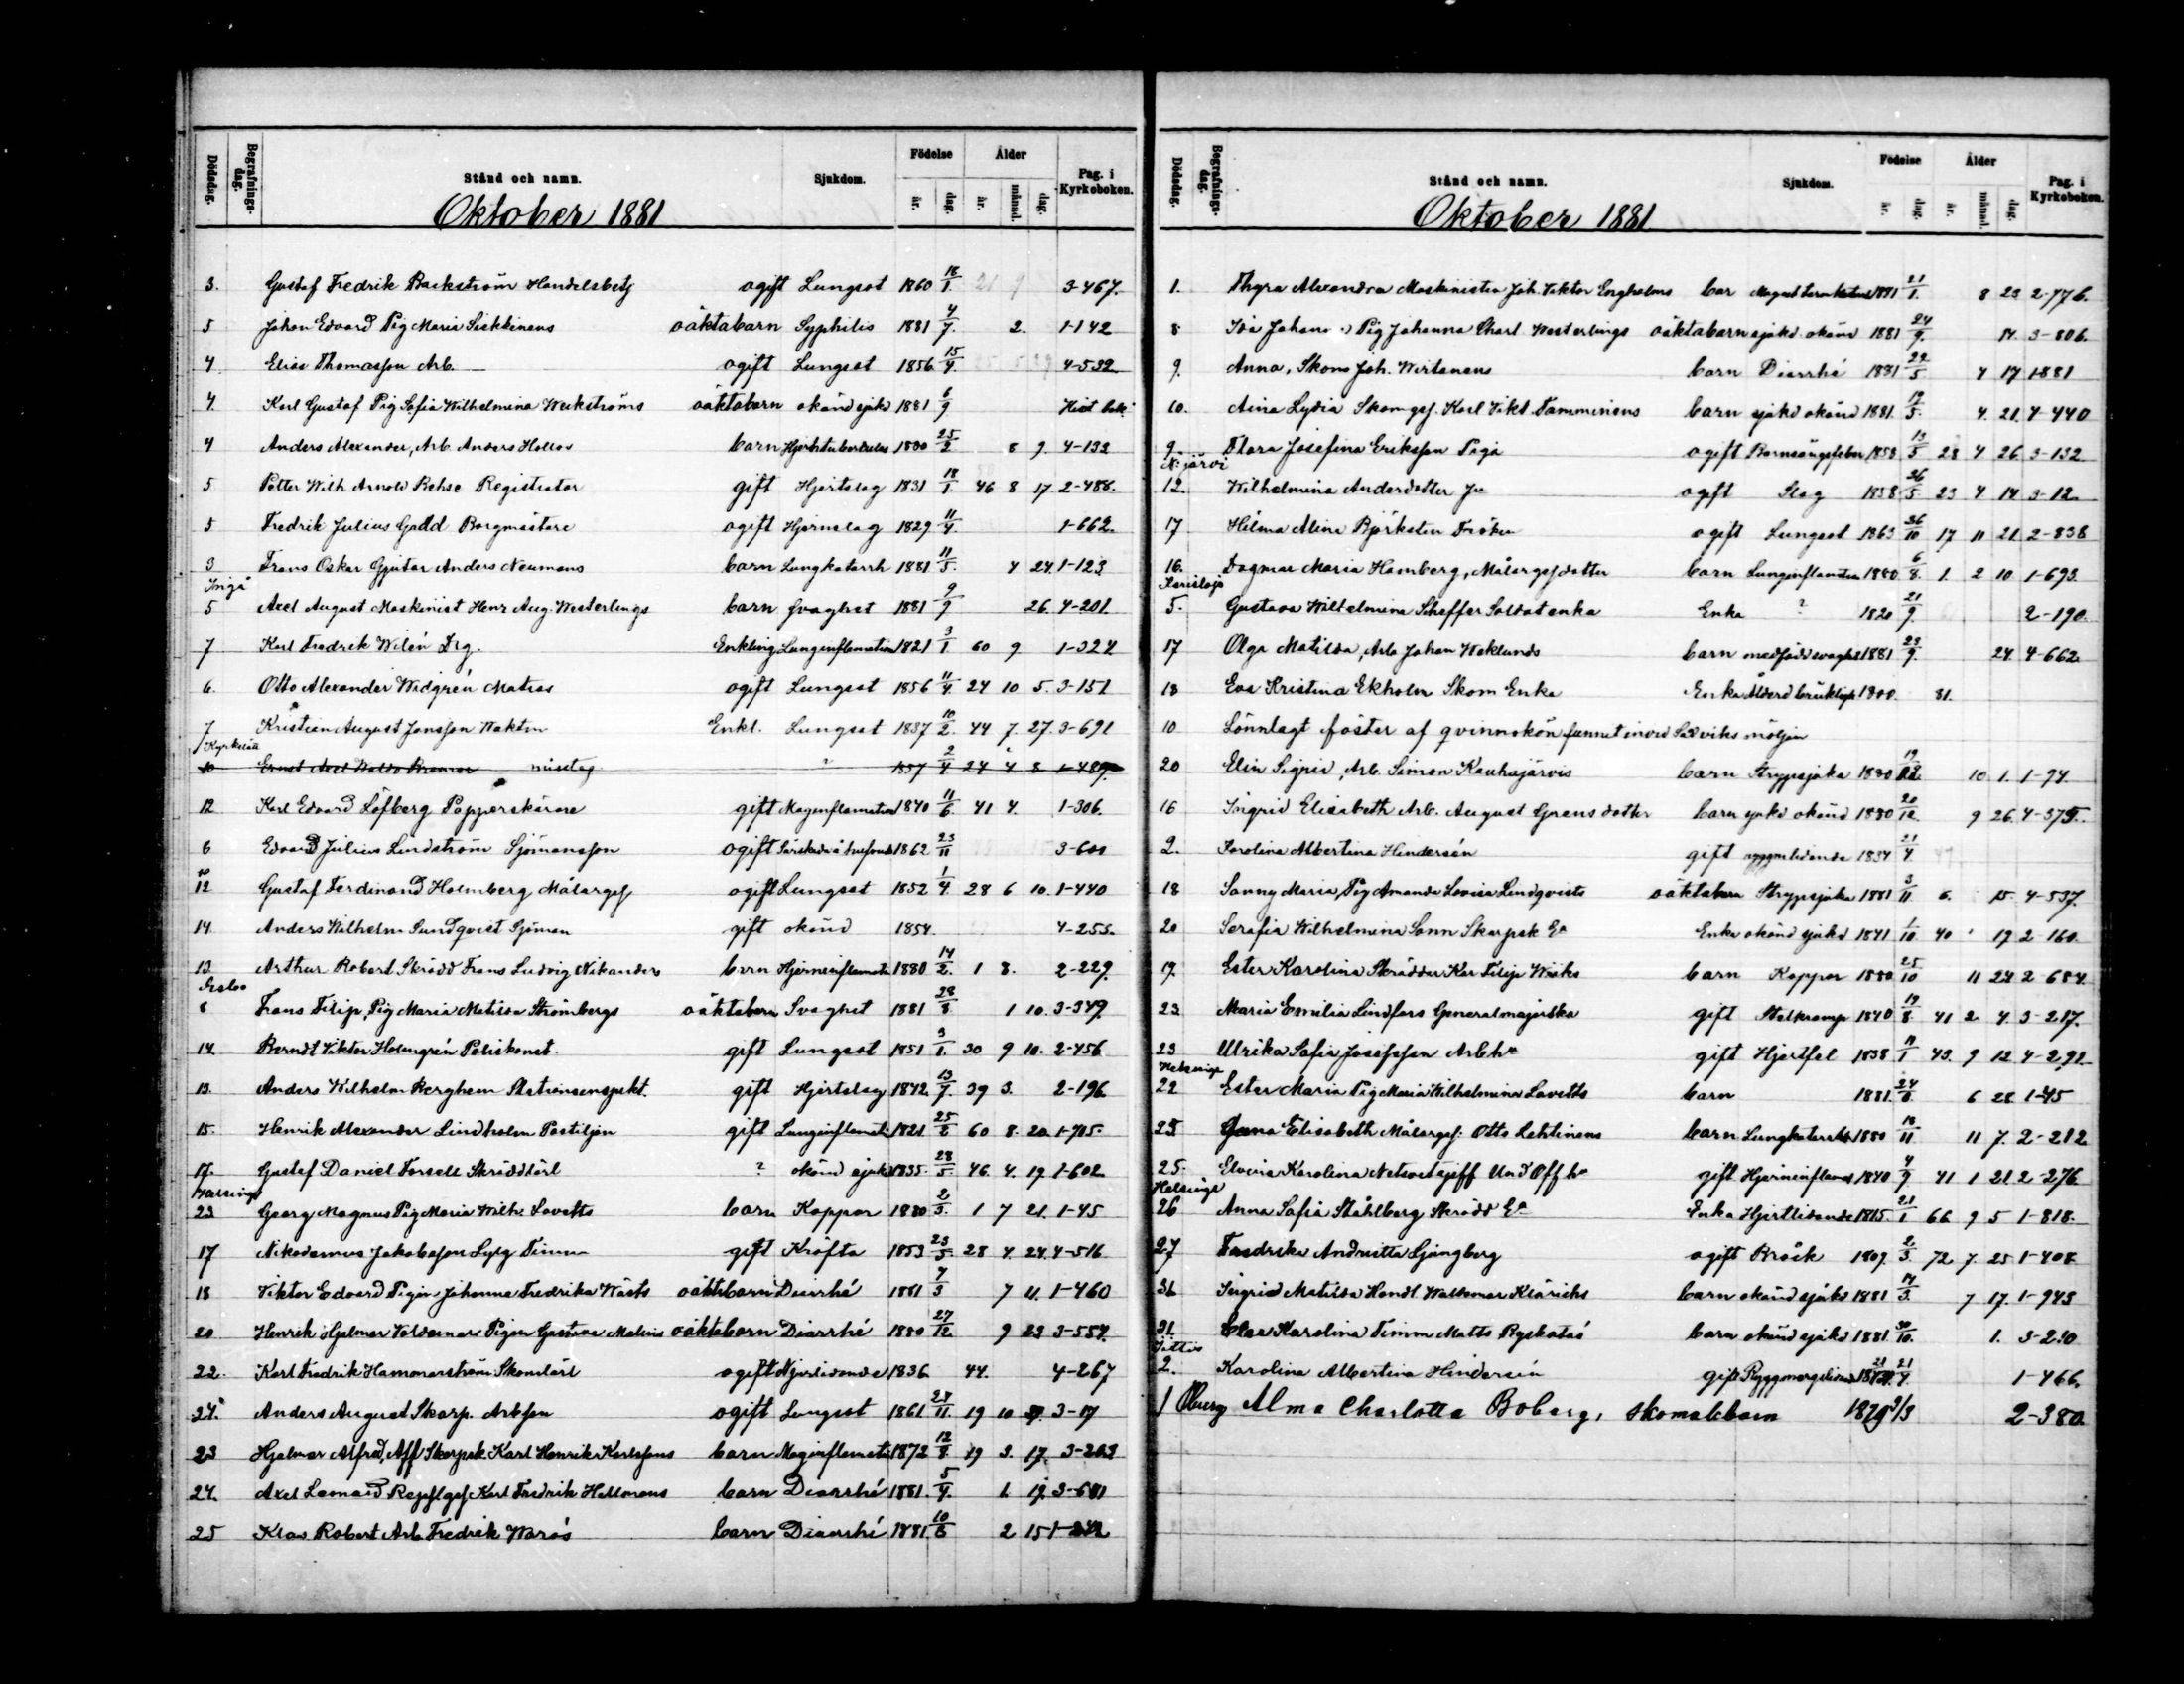 Dödsdag. Begrafningsdag. Stånd och namn. Sjukdom. Födelse år. dag. Ålder år. månad. dag. Pag. i Kyrkoboken.
Oktober 1881
3. Gustaf Fredrik Backström Handelsbetj ogift Lungsot 1860 18/1. 21 9 3-467.
5 Johan Edvard Pig Maria Siekkinens oäktabarn Syphilis 1881 4/7. 2. 1-142
4 Elias Thomasson Arb. ogift Lungsot 1856 15/4. 4-532
4. Karl Gustaf Pig Sofia Wilhelmina Weckströms oäktabarn okänd sjukd 1881 6/9
4 Anders Alexander, Arb. Anders Hollos barn 1880 25/2 8 9. 4-133
5 Petter Wilh Arnold Behse Registrator gift Hjertslag 1831 18/1. 46 8 17 2-488.
5 Fredrik Julius Gadd Borgmästare ogift Hjernslag 1829 11/4. 1-662.
3 Frans Oskar Gjutar Anders Neumans barn Lungkatarrh 1881 11/5. 4 24. 1-123
Ingå
5 Axel August Maskinist Henr Aug. Westerlings barn svaghet 1881 9/9 26. 4-201.
7 Karl Fredrik Wilén Drg. Enkling Lunginflamation 1821 3/1 60 9 1-324.
6. Otto Alexander Widgrén Matros ogift Lungsot 1856 11/4. 24 10 5. 3-151
7 Kristian August Jansson Waktm Enkl. Lungsot 1837 10/2. 44 7. 27. 3-691
Kyrkslätt
10 Ernst Axel Waldo Bremer misstag ? 1857 2/4. 24 4 8 1-489.
12 Karl Edvard Löfberg Papperskärare gift Maginflamation 1840 11/6. 41 4. 1-306.
6 Edvard Julius Lindström Sjömansson ogift 1862 23/11 3-600
10
12 Gustaf Ferdinand Holmberg Målargs ogift Lungsot 1852 1/4. 28 6 10. 1-440
14 Anders Wilhelm Sundqvist Sjöman gift okänd 1854. 4-255.
13 Arthur Robert Skrädd Frans Ludvig Nikanders barn Hjerninflamatn 1880 14/2. 1 8. 2-229.
Esbo
8 Frans Filip, Pig Maria Matilda Strömbergs oäktabarn Svaghet 1881 28/8. 1 10. 3-349
14. Berndt Viktor Holmgrén Poliskonst. gift Lungsot 1851 3/1. 30 9 10. 2-456
13. Anders Wilhelm Berghem Stationsinspekt. gift Hjertslag 1842. 13/7. 39 3. 2-196.
15. Henrik Alexander Lindholm Postiljon gift Lunginflamatn 1821 25/2 60 8. 20. 1-705.
17. Gustaf Daniel Forsell Skräddlärl ? okänd sjukd 1835. 28/5. 46. 4. 19. 1-602
Helsinge
23 Georg Magnus Pig Maria Wilh. Lovetts barn Koppor 1880 2/3. 1 7 21. 1-45
17 Nikodemus Jakobsson Lylg Timm gift Kräfta 1853 23/5 28 4. 24. 4-516
18 Viktor Edvard Pigan Johanna Fredrika Wästs oäktabarn Diarrhé 1881 7/3 7 11. 1-460
20 Henrik Hjalmar Valdemar Pigan Gustava Malins oäktabarn Diarrhé 1880 27/12. 9 23 3-554.
22. Karl Fredrik Hammarström Skomlärl ogift Njurlidande 1836 44. 4-267
24. Anders August Skarp. Arbson ogift Lungsot 1861 27/11. 19 10 27. 3-17
23 Hjalmar Alfred, Aff Skarpsk Karl Henrik Karlssons barn Maginflamatn 1872 12/8. 19 3. 17. 3-203
24. Axel Leonard Karl Fredrik Hellmans barn Diarrhé 1881. 5/9. 1. 19. 3-601
25 Klas Robert Arb. Fredrik Warös barn Diarrhé 1881. 10/8 2 15
Dödsdag. Begrafningsdag. Stånd och namn. Sjukdom. Födelse år. dag. Ålder år. månad. dag. Pag. i Kyrkoboken.
Oktober 1881
1. Thyra Alexandra Maskinisten Joh. Viktor Engholms bar 1881 21/1. 8 23 2-776.
8 Ida Johana Pig Johanna Charl Westerlings oäktabarn sjukd. okänd 1881 24/9. 14. 3-806.
9. Anna, Skoms Joh. Wirtanens barn Diarrhé 1881 22/5 4 17 1-881
10. Aina Lydia Skomges. Karl Vikt Tamminens barn sjukd okänd 1881. 19/5. 4. 21. 4-440
9 Flora Josefina Eriksson Piga ogift Barnsängsfeber 1858 13/5 28 4 26. 3-132
N:järvi
12. Wilhelmina Andersdotter ogift Slag 1858 26/5. 23 4 14 3-12.
17 Hilma Alina Björkstén Fröken ogift Lungsot 1863 26/10 17 11 21. 2-838
16. Dagmar Maria Hamberg, Målargesdotter barn Lunginflamtn 1880 6/8. 1. 2 10. 1-693.
Karislojo
5. Gustava Wilhelmina Scheffer Soldatenka Enka ? 1820 21/9. 2-190.
17 Olga Matilda, Arb Johan Weklunds barn medfödd svaghet 1881 23/9. 24. 4-662
18 Eva Kristina Ekholm Skom Enka Enka Ålderd bräcklighet 1800. 81.
10 Lönnlagt foster af qvinnokön funnet invid Sandviks möljan
20 Elin Sigrid, Arb. Simon Kauhajärvis barn Strypsjuka 1880 19/12 10 1. 1-94.
16 Ingrid Elisabeth Arb. August Grans dotter barn sjukd okänd 1880 20/12. 9 26. 4-375.
2. Karolina Albertina Hindersén gift ryggmlidande 1834 21/4.
18 Sanny Maria, Pig Amanda Lovisa Lindqvists oäktabarn Strypsjuka 1881 3/11. 6. 15. 4-537.
20 Serafia Wilhelmina Sonn Skarpsk Ea Enka okänd sjukd 1841 1/10. 40 19 2-160.
17. Ester Karolina Skräddar Kar Filip Wiiks barn Koppor 1880 25/10 11 22 2-684.
23. Maria Emilia Lindfors Generalmajorska gift Stelkramp 1840 19/8. 41 2. 4. 3-217.
23 Ulrika Sofia Josefsson Arbha gift Hjertfel 1838 11/1 43. 9 12 4-292
Helsinge
22 Ester Maria Pig Maria Wilhelmina Lovetts barn 1881. 24/8 6 28 1-45
25. Elisabeth Målarges. Otto Lehtinens barn Lungkatarrh 1880 18/11 11 7. 2-212
25. Elvina Karolina Und Off ha gift Hjerninflamat 1840 4/9 41 1 21. 2-276
Helsinge
26 Anna Sofia Ståhlberg Skrädd Ea Enka Hjertlidande 1815. 21/1 66 9 5 1-818.
27 Fredrika Andrietta Ljungberg ogift Bråck 1809. 2/3. 72 7. 25 1-408.
31 Ingrid Matilda Handl Waldemar Klärichs barn okänd sjukd 1881 14/3. 7 17. 1-943
31. Karolina Timm Matts Ryskatas barn okänd sjukd 1881. 30/10. 1. 3-230
2. Karolina Albertina Hindersén gift Ryggmärgslidand 21/4. 1-466.
1 Alma Charlotta Boberg, skomakbarn 1879 9/3 2-380